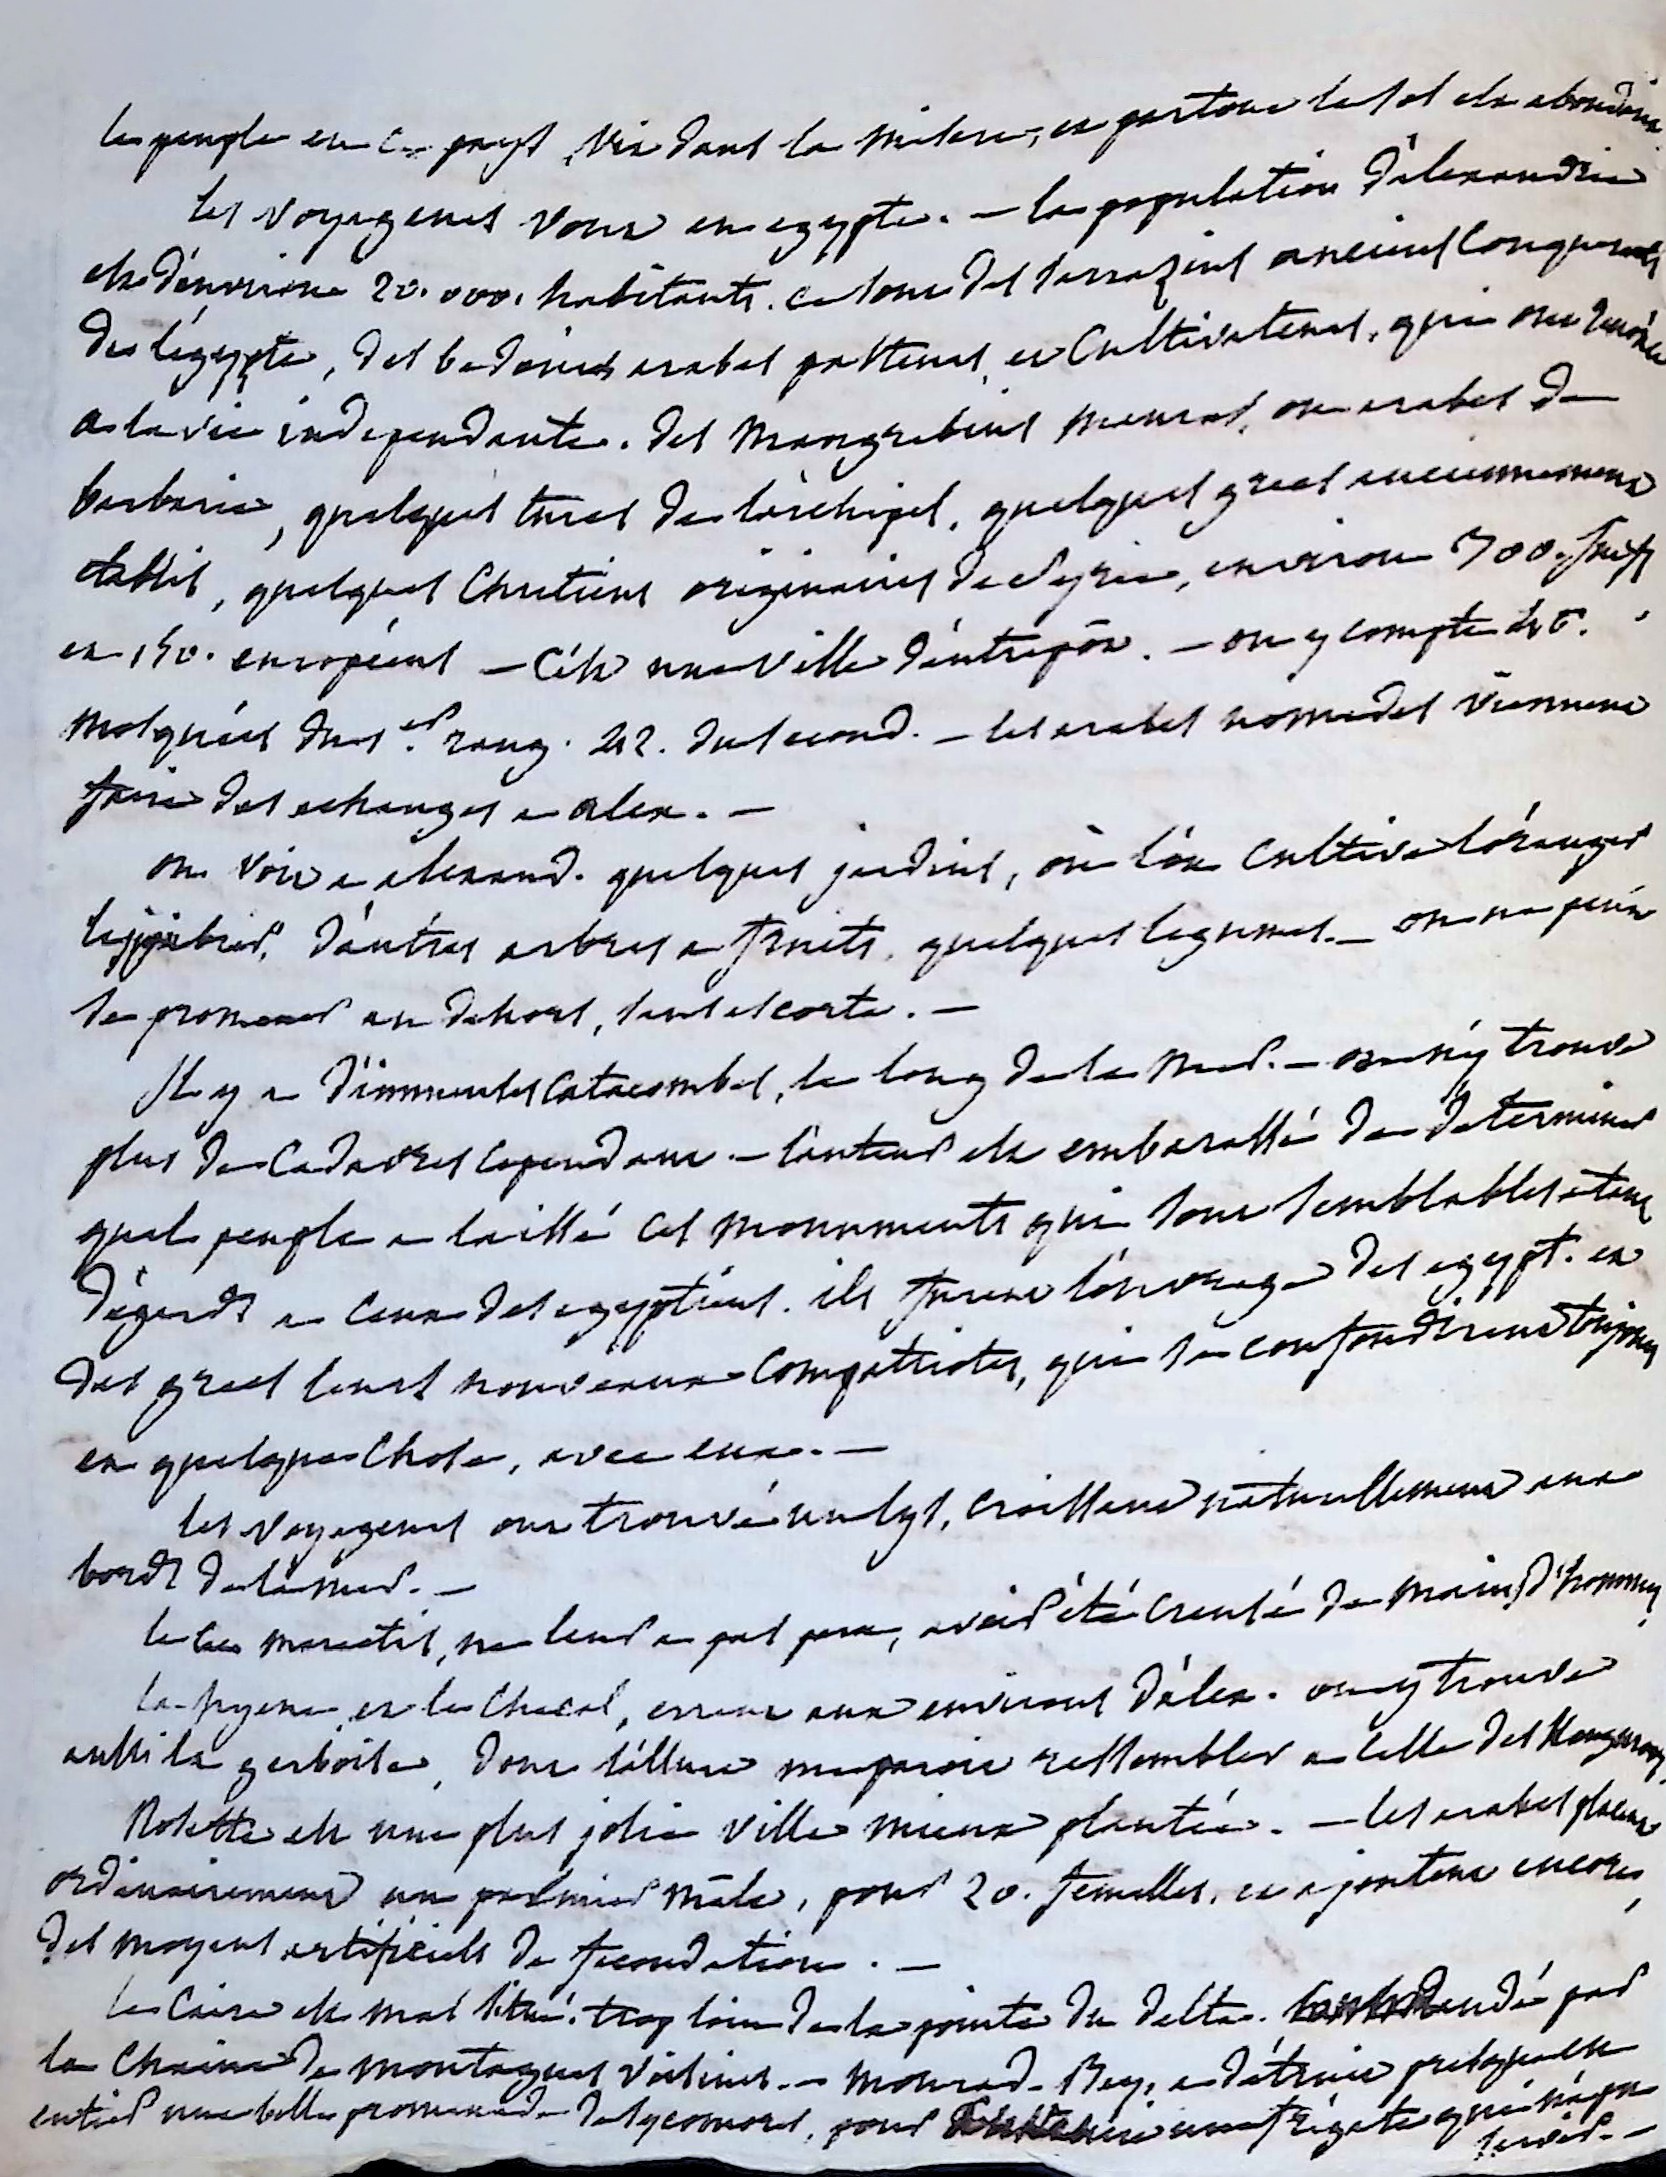 le peuple en ce pays vit dans la misere, et partout le sol est abondant.
les voyageurs vont en egypte. — la population d'alexandrie
est d'environ 20.000. habitants. ce sont des sarrazins anciens conquerants
de l'égypte, des bedouins arabes pasteurs, et cultivateurs, qui ont renoncé
a la vie independante. des maugrebins maures, ou arabes de
barbarie, quelques turcs de l'archipel, quelques grecs anciennement
établis, quelques chretiens originaires de Syrie, environ 300. juifs
et 150. européens — c'est une ville d'entrepôt. — on y compte
mosquées du 1.er rang. 42. du second. — les arabes nomades viennent
faire des echanges a alex. —
on voit a alexand. quelques jardins, où l'on cultive l'oranger
d'autres arbres a fruits, quelques legumes. — on ne peut
se promener au dehors, sans escorte. —
Il y a d'immenses catacombes, le long de la mer. — on n'y trouve
plus de cadavres cependant. — l'auteur est embarassé de determiner
quel peuple a laissé ces monuments qui sont semblables a tant
d'égards a ceux des egyptiens. ils furent l'ouvrage des egypt. et
des grecs leurs nouveaux compatriotes, qui se confondirent toujours
en quelque chose, avec eux. —
les voyageurs ont trouvé un lys, croissant naturellement aux
bords de la mer. —
le lac mareotis, ne leur a pas paru, avoir été creusé de mains d'hommes.
la hyene et le chacal, errent aux environs d'alex. on y trouve
aussi la gerboise, dont l'allure me parait ressembler a celle des Kangurous.
Rosette est une plus jolie ville mieux plantée. — les arabes placent
ordinairement un palmier mâle, pour 20. femelles, et ajoutent encore,
des moyens artificiels de fecondation. —
le Caire est mal situé. trop loin de la pointe du delta. par
la chaine de montagnes voisines. — Mourad-Bey, a détruit presqu'en
entier une belle promenade de sycomores, pour une frégate qui n'a pu
servir. —